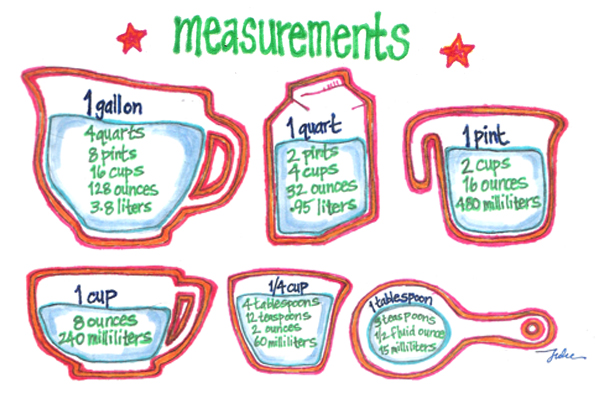 measurements
1 gallon
4 quarts
8 pints
16 cups
128 ounces
3.8 liters
1 quart
2 pints
4 cups
32 ounces
.95 liters
1 pint
2 cups
16 ounces
480 milliliters
1 cup
8 ounces
240 milliliters
1/4 cup
4 tablespoons
12 teaspoons
2 ounces
60 milliliters
1 tablespoon
3 teaspoons
1/2 fluid ounce
15 milliliters